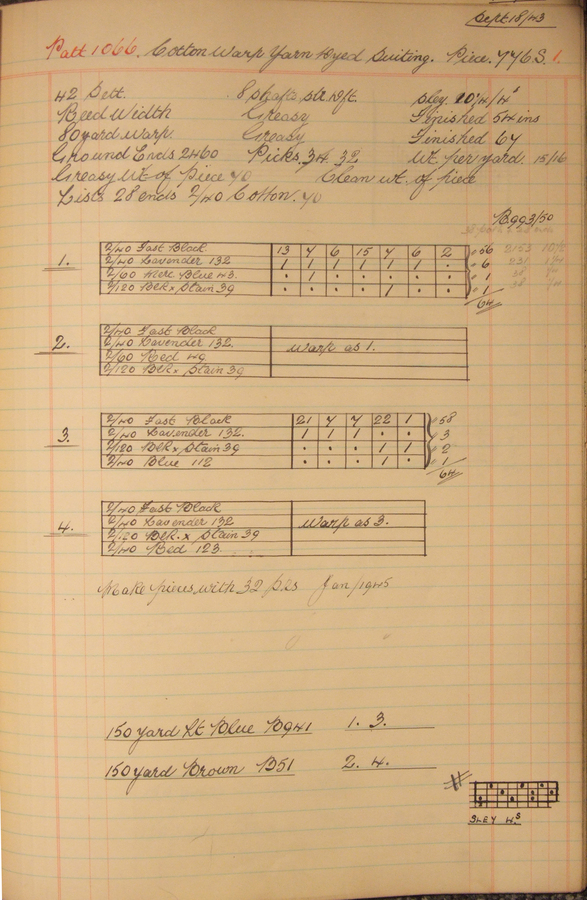 Sept. 18/43
Patt 1066. Cotton Warp Yarn Dyed Suiting. Piece. 776S. 1.
42 Sett. 8 shafts str. dft. Sley. 10/4/4s
Reed Width Greasy Finished 54 ins
80 yard warp. Greasy Finished 67
Ground Ends 2460 Picks. 34. 32 Wt. per yard. 15/16
Greasy Wt of Piece 70 Clean wt. of piece
Lists 28 ends 2/40 Cotton. 70
B993/50
1.
2/40 Fast Black 13 7 6 15 7 6 2 56
2/40 Lavender 132 1 1 1 1 1 1 . 6
2/60 Merc. Blue 43. . 1 . . . . . 1
2/120 Blk x Stain 39 . . . . 1 . . 1
64
2.
2/40 Fast Black
2/40 Lavender 132. Warp as 1.
2/60 Red 49
2/120 Blk x Stain 39
3.
2/40 Fast Black 21 7 7 22 1 58
2/40 Lavender 132. 1 1 1 . . 3
2/120 Blk x Stain 39 . . . 1 1 2
2/40 Blue 112 . . . 1 . 1
64
4.
2/40 Fast Black
2/40 Lavender 132 Warp as 3.
2/120 Blk. x Stain 39
2/40 Red 123.
Make pieces with 32 pks Jan/1945
150 yard Lt Blue B941 1. 3.
150 yard Brown B51 2. 4.
SLEY 4.S